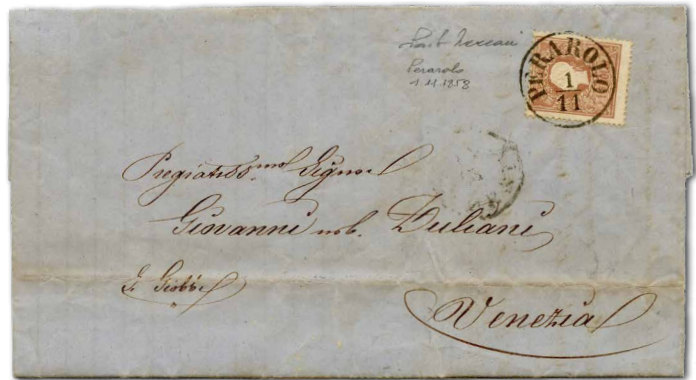 PERAROLO
1
11
Perarolo
1.11.1858
Pregiatiss.mo Signor
Giovanni nob. Duliani
S. Giobbe
Venezia